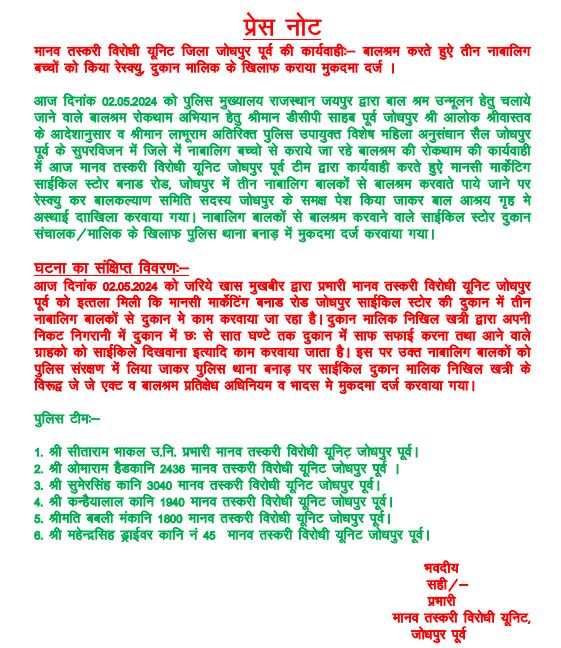 प्रेस नोट
मानव तस्करी विरोधी यूनिट जिला जोधपुर पूर्व की कार्यवाहीः– बालश्रम करते हुऐ तीन नाबालिग
बच्चों को किया रेस्क्यु, दुकान मालिक के खिलाफ कराया मुकदमा दर्ज ।
आज दिनांक 02.05.2024 को पुलिस मुख्यालय राजस्थान जयपुर द्वारा बाल श्रम उन्मूलन हेतु चलाये
जाने वाले बालश्रम रोकथाम अभियान हेतु श्रीमान डीसीपी साहब पूर्व जोधपुर श्री आलोक श्रीवास्तव
के आदेशानुसार व श्रीमान लाभूराम अतिरिक्त पुलिस उपायुक्त विशेष महिला अनुसंधान सैल जोधपुर
पूर्व के सुपरविजन में जिले में नाबालिग बच्चो से कराये जा रहे बालश्रम की रोकथाम की कार्यवाही
में आज मानव तस्करी विरोधी यूनिट जोधपुर पूर्व टीम द्वारा कार्यवाही करते हुऐ मानसी मार्केटिंग
साईकिल स्टोर बनाड रोड, जोधपुर में तीन नाबालिग बालकों से बालश्रम करवाते पाये जाने पर
रेस्क्यु कर बालकल्याण समिति सदस्य जोधपुर के समक्ष पेश किया जाकर बाल आश्रय गृह मे
अस्थाई दााखिला करवाया गया। नाबालिग बालकों से बालश्रम करवाने वाले साईकिल स्टोर दुकान
संचालक/मालिक के खिलाफ पुलिस थाना बनाड़ में मुकदमा दर्ज करवाया गया।
घटना का संक्षिप्त विवरणः–
आज दिनांक 02.05.2024 को जरिये खास मुखबीर द्वारा प्रभारी मानव तस्करी विरोधी यूनिट जोधपुर
पूर्व को इत्तला मिली कि मानसी मार्केटिंग बनाड रोड जोधपुर साईकिल स्टोर की दुकान में तीन
नाबालिग बालकों से दुकान मे काम करवाया जा रहा है। दुकान मालिक निखिल खत्री द्वारा अपनी
निकट निगरानी में दुकान में छः से सात घण्टे तक दुकान में साफ सफाई करना तथा आने वाले
ग्राहको को साईकिले दिखवाना इत्यादि काम करवाया जाता है। इस पर उक्त नाबालिग बालकों को
पुलिस संरक्षण में लिया जाकर पुलिस थाना बनाड़ पर साईकिल दुकान मालिक निखिल खत्री के
विरूद्व जे जे एक्ट व बालश्रम प्रतिक्षेध अधिनियम व भादस मे मुकदमा दर्ज करवाया गया।
पुलिस टीमः–
1. श्री सीताराम भाकल उ.नि. प्रभारी मानव तस्करी विरोधी यूनिट् जोधपुर पूर्व।
2. श्री ओमाराम हैडकानि 2436 मानव तस्करी विरोधी यूनिट जोधपुर पूर्व ।
3. श्री सुमेरसिंह कानि 3040 मानव तस्करी विरोधी यूनिट जोधपुर पूर्व।
4. श्री कन्हैयालाल कानि 1940 मानव तस्करी विरोधी यूनिट जोधपुर पूर्व।
5. श्रीमति बबली मंकानि 1800 मानव तस्करी विरोधी यूनिट जोधपुर पूर्व।
6. श्री महेन्द्रसिह ड्राईवर कानि नं 45 मानव तस्करी विरोधी यूनिट जोधपुर पूर्व।
भवदीय
सही/–
प्रभारी
मानव तस्करी विरोधी यूनिट,
जोधपुर पूर्व